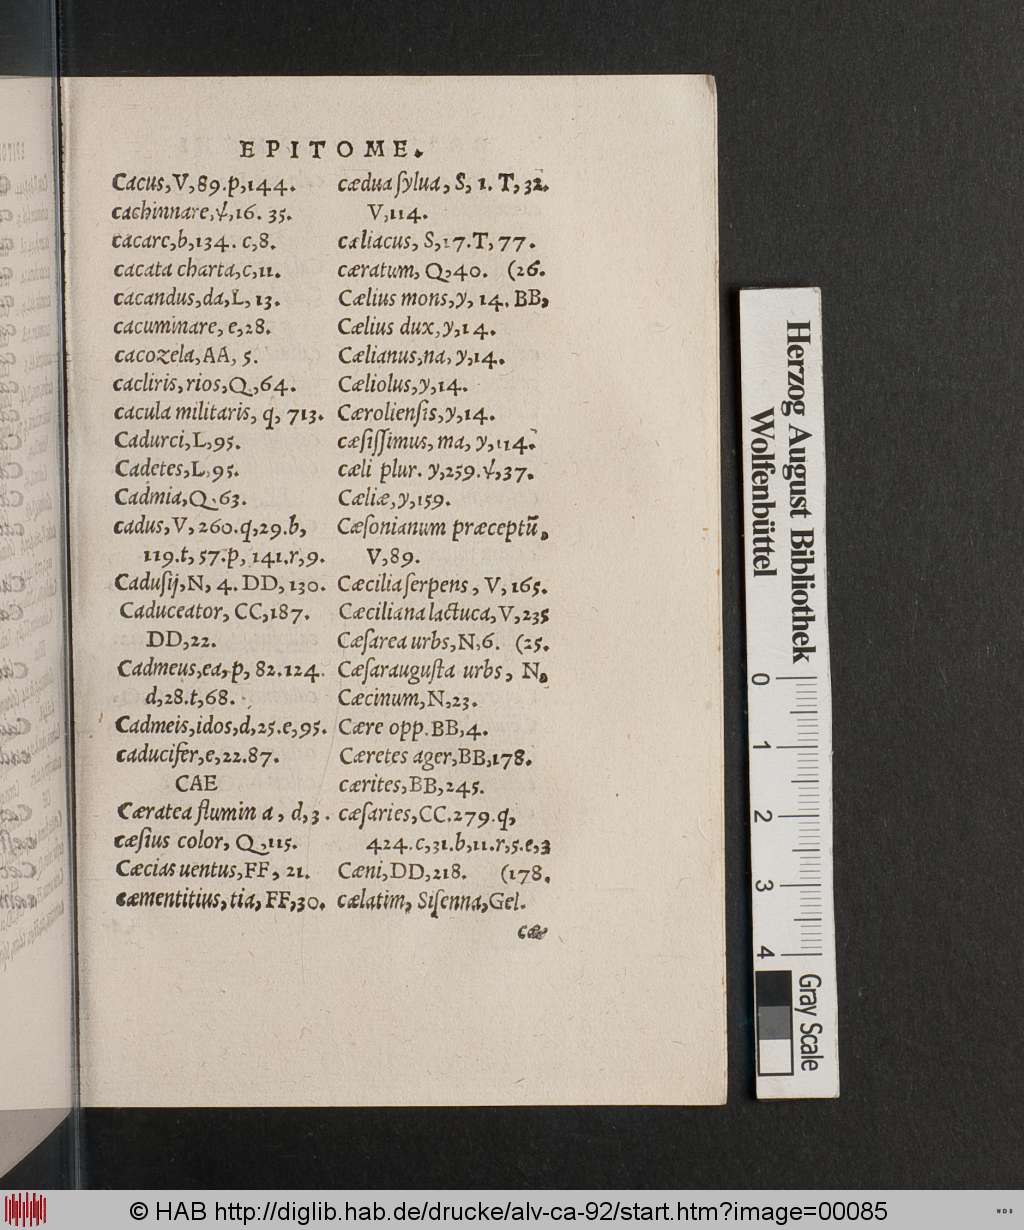 EPITOME.
Cacus, V, 89. p, 144.
cachinnare, ψ, 16. 35.
cacarc, b, 134. c, 8.
cacata charta, c, 11.
cacandus, da, L, 13.
cacuminare, e, 28.
cacozela, AA, 5.
cacliris, rios, Q, 64.
cacula militaris, q, 713.
Cadurci, L, 95.
Cadetes, L, 95.
Cadmia, Q, 63.
cadus, V, 260. q, 29. b,
119. t, 57. p, 141. r, 9.
Cadusij, N, 4. DD, 130.
Caduceator, CC, 187.
DD, 22.
Cadmeus, ea, p, 82. 124.
d, 28. t, 68.
Cadmeis, idos, d, 25. e, 95.
caducifer, e, 22. 87.
CAE
Cæratea flumin a, d, 3.
cæsius color, Q, 115.
Cæcias uentus, FF, 21.
cæmentitius, tia, FF, 30.
cædua sylua, S, 1. T, 32.
V, 114.
cæliacus, S, 17. T, 77.
cæratum, Q, 40. (26.
Cælius mons, y, 14. BB,
Cælius dux, y, 14.
Cælianus, na, y, 14.
Cæliolus, y, 14.
Cæroliensis, y, 14.
cæsissimus, ma, y, 114.
cæli plur. y, 259. ψ, 37.
Cæliæ, y, 159.
Cæsonianum præceptū,
V, 89.
Cæcilia serpens, V, 165.
Cæciliana lactuca, V, 235
Cæsarea urbs, N, 6. (25.
Cæsaraugusta urbs, N,
Cæcinum, N, 23.
Cære opp. BB, 4.
Cæretes ager, BB, 178.
cærites, BB, 245.
cæsaries, CC. 279. q,
424. c, 31. b, 11. r, 5. e, 3
Cæni, DD, 218. (178.
cælatim, Sisenna, Gel.
cæ
Herzog August Bibliothek
Wolfenbüttel
0 1 2 3 4
Gray Scale
© HAB http://diglib.hab.de/drucke/alv-ca-92/start.htm?image=00085
WDB